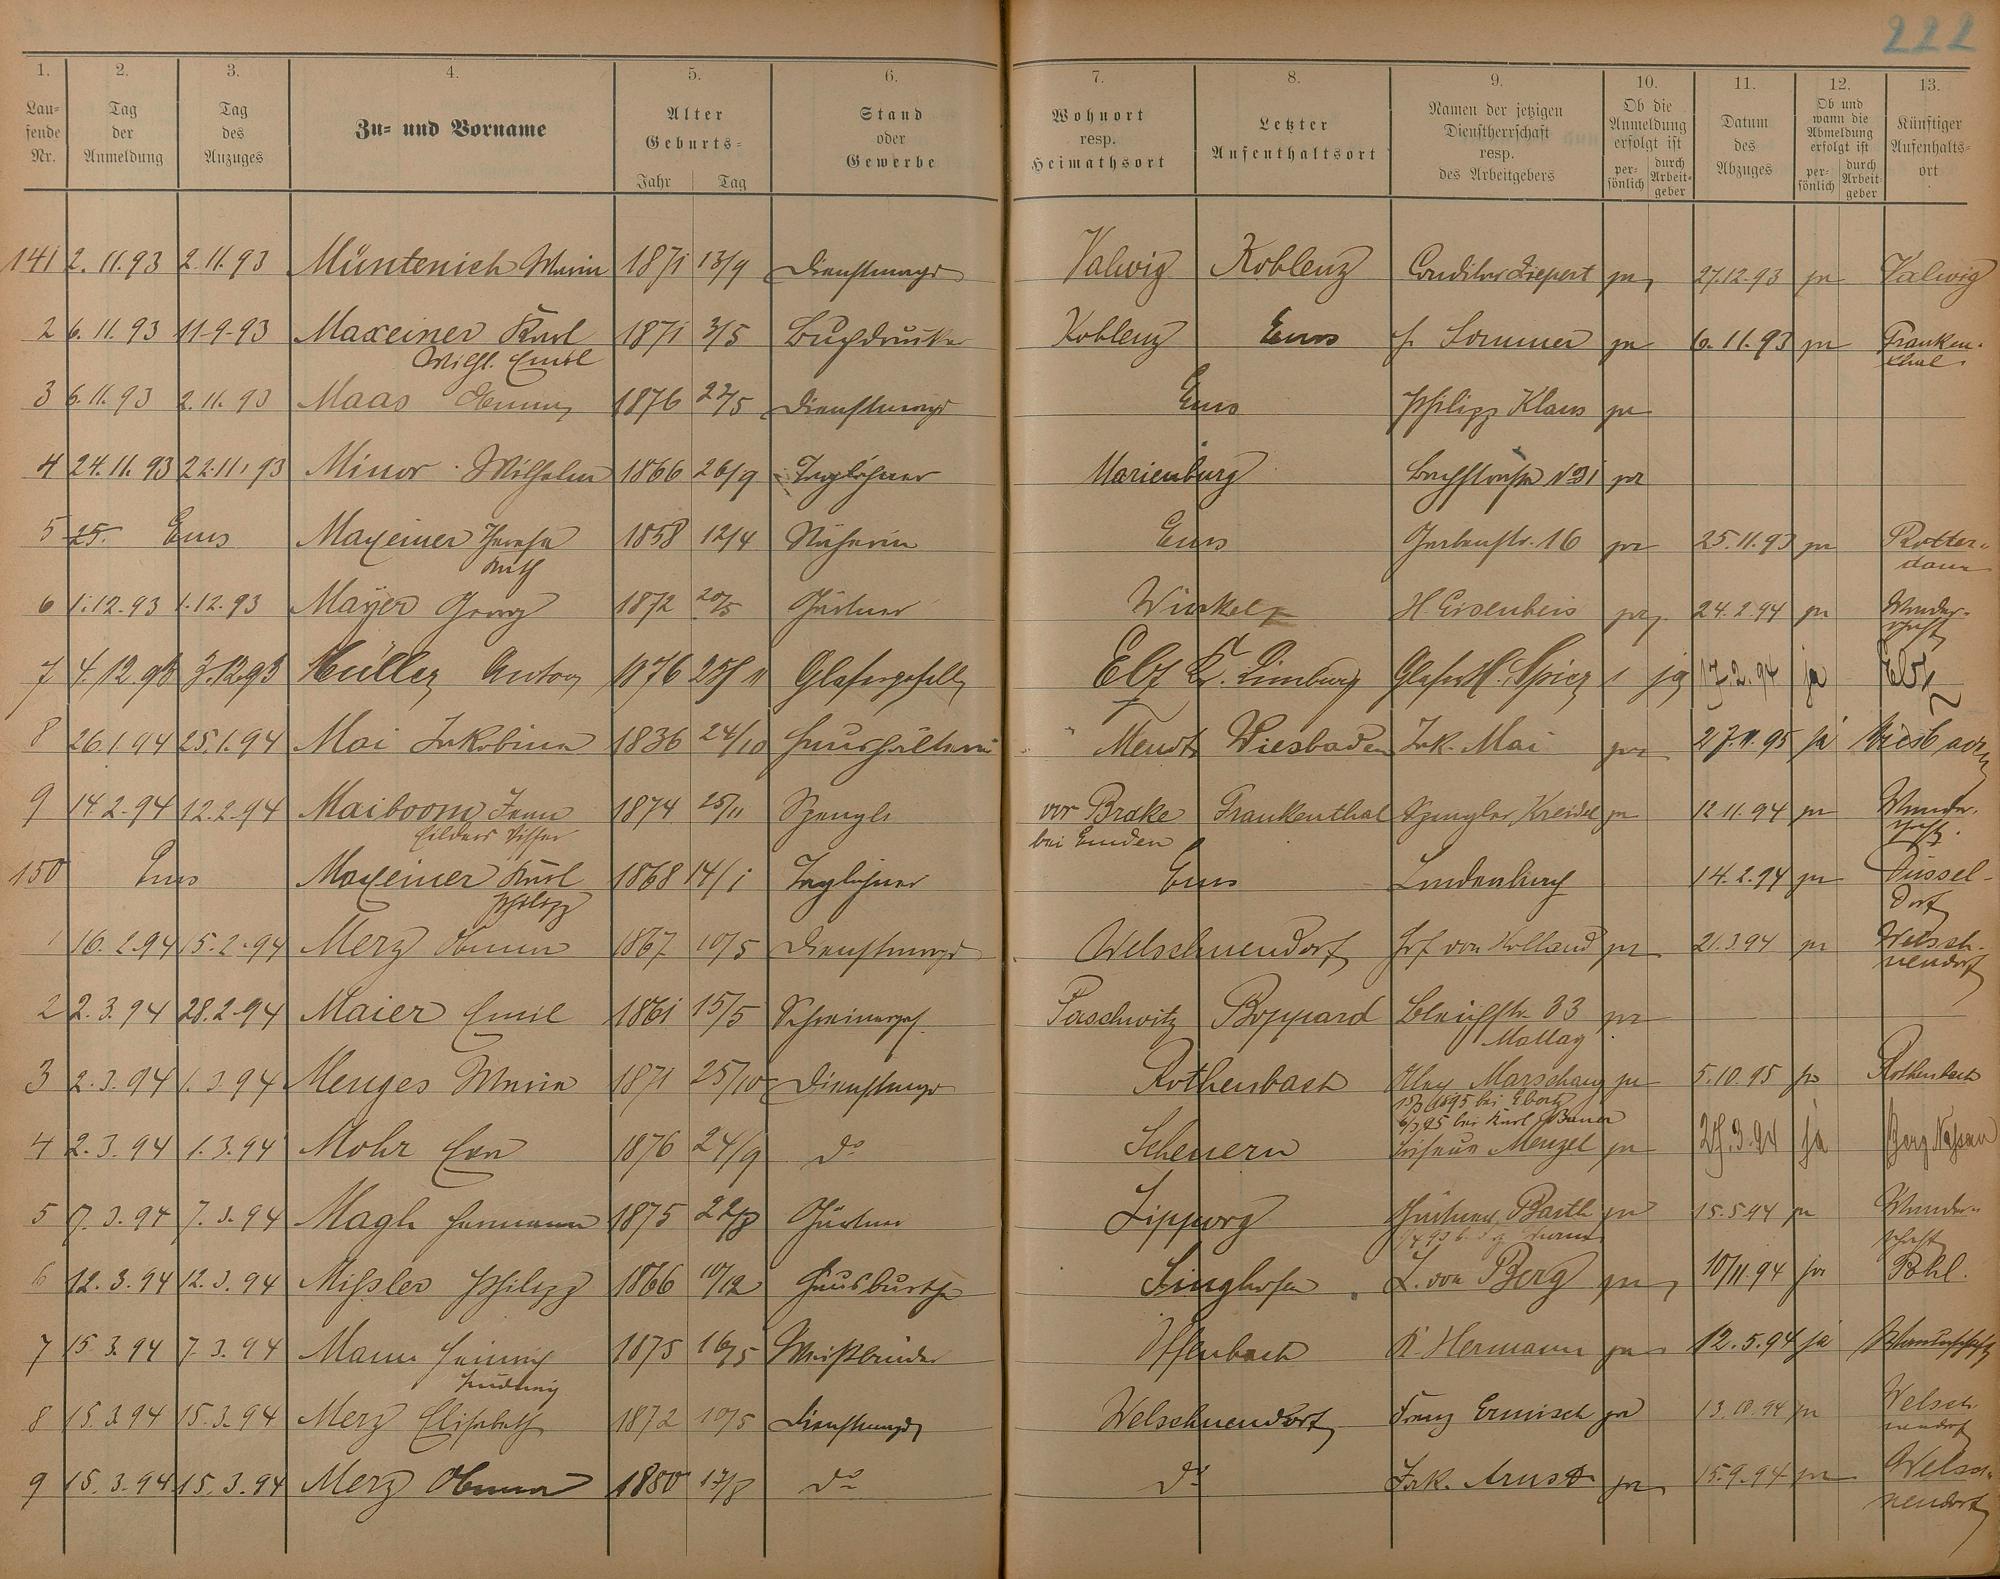 222
1. 2. 3. 4. 5. 6. 7. 8. 9. 10. 11. 12. 13.
Laufende Nr. Tag der Anmeldung Tag des Anzuges Zu- und Vorname Alter Geburts- Jahr Tag Stand oder Gewerbe Wohnort resp. Heimathsort Letzter Aufenthaltsort Namen der jetzigen Dienstherrschaft resp. des Arbeitgebers Ob die Anmeldung erfolgt ist persönlich durch Arbeitgeber Datum des Abzuges Ob und wann die Abmeldung erfolgt ist persönlich durch Arbeitgeber Künftiger Aufenthaltsort
141 2.11.93 2.11.93 Müntenich Maria 1871 13/9 Dienstmagd Valwig Koblenz Conditor Liepert ja 27.12.93 ja Valwig
2 6.11.93 11.9.93 Maxeiner Karl 1871 3/5 Buchdrucker Koblenz Ems H. Sommer ja 6.11.93 ja Franken-
Wilh. Emil thal
3 6.11.93 2.11.93 Maas 1876 22/5 Dienstmagd Ems Philipp Klaus ja
4 24.11.93 22.11.93 Minor Wilhelm 1866 26/9 Taglöhner Marienburg Bachstraße No 31 ja
5 25. Ems Maxeiner 1858 12/4 Näherin Ems 16 ja 25.11.93 ja Rotter-
dam
6 1.12.93 1.12.93 Mayer Georg 1872 20/5 Gärtner Winkel H. Eisenbeis ja 24.2.94 ja Wander-
schaft
7 4.12.93 3.12.93 Müller Anton 1876 25/11 Glasergeselle Elz Kr. Limburg Glaser H. Spier 1 ja 17.2.94 ja Elz
8 26.1.94 25.1.94 Mai Jakobina 1836 24/10 Haushälterin Mendt Wiesbaden Jak. Mai ja 27.11.95 ja Wiesbaden
9 14.2.94 12.2.94 Maiboom 1874 25/11 Spengler vor Brake Frankenthal Spengler Kreidel ja 12.11.94 ja Wander-
Eilders Visser bei Emden schaft
150 Ems Maxeiner Karl 1868 14/1 Taglöhner Ems Lindenbach 14.2.94 ja Düssel-
Philipp dorf
1 16.2.94 15.2.94 Merz Anna 1867 10/5 Dienstmagd Welschneudorf Hof von Holland ja 21.3.94 ja Welsch-
neudorf
2 2.3.94 28.2.94 Maier Emil 1861 15/5 Schreinerges. Paschwitz Boppard Bleichstr. 33 ja
Mattay
3 2.3.94 1.3.94 Menges Maria 1871 25/10 Dienstmagd Rothenbach Marschang ja 5.10.95 ja Rothenbach
1895 bei
bei Karl Bauer
4 2.3.94 1.3.94 Mohr Eva 1876 24/9 do Scheuern Friseur Menzel ja 25.3.94 ja Berg Nassau
5 7.3.94 7.3.94 Magh Hermann 1875 22/8 Gärtner Lipporg Gärtner Barth ja 15.5.94 ja Wander-
schaft
6 12.3.94 12.3.94 Mißler Philipp 1866 10/12 Hausbursche Singhofen L. von Berg ja 10/11.94 ja Pohl.
7 15.3.94 7.3.94 Mann Heinrich 1875 16/5 Weißbinder Offenbach K. Hermann ja 12.5.94 ja Wanderschaft
Ludwig
8 15.3.94 15.3.94 Merz Elisabeth 1872 10/5 Dienstmagd Welschneudorf Franz Ermisch ja 13.10.94 ja Welsch
neudorf
9 15.3.94 15.3.94 Merz Anna 1880 17/8 do do Jak. Arnst ja 15.9.94 ja Welsch-
neudorf